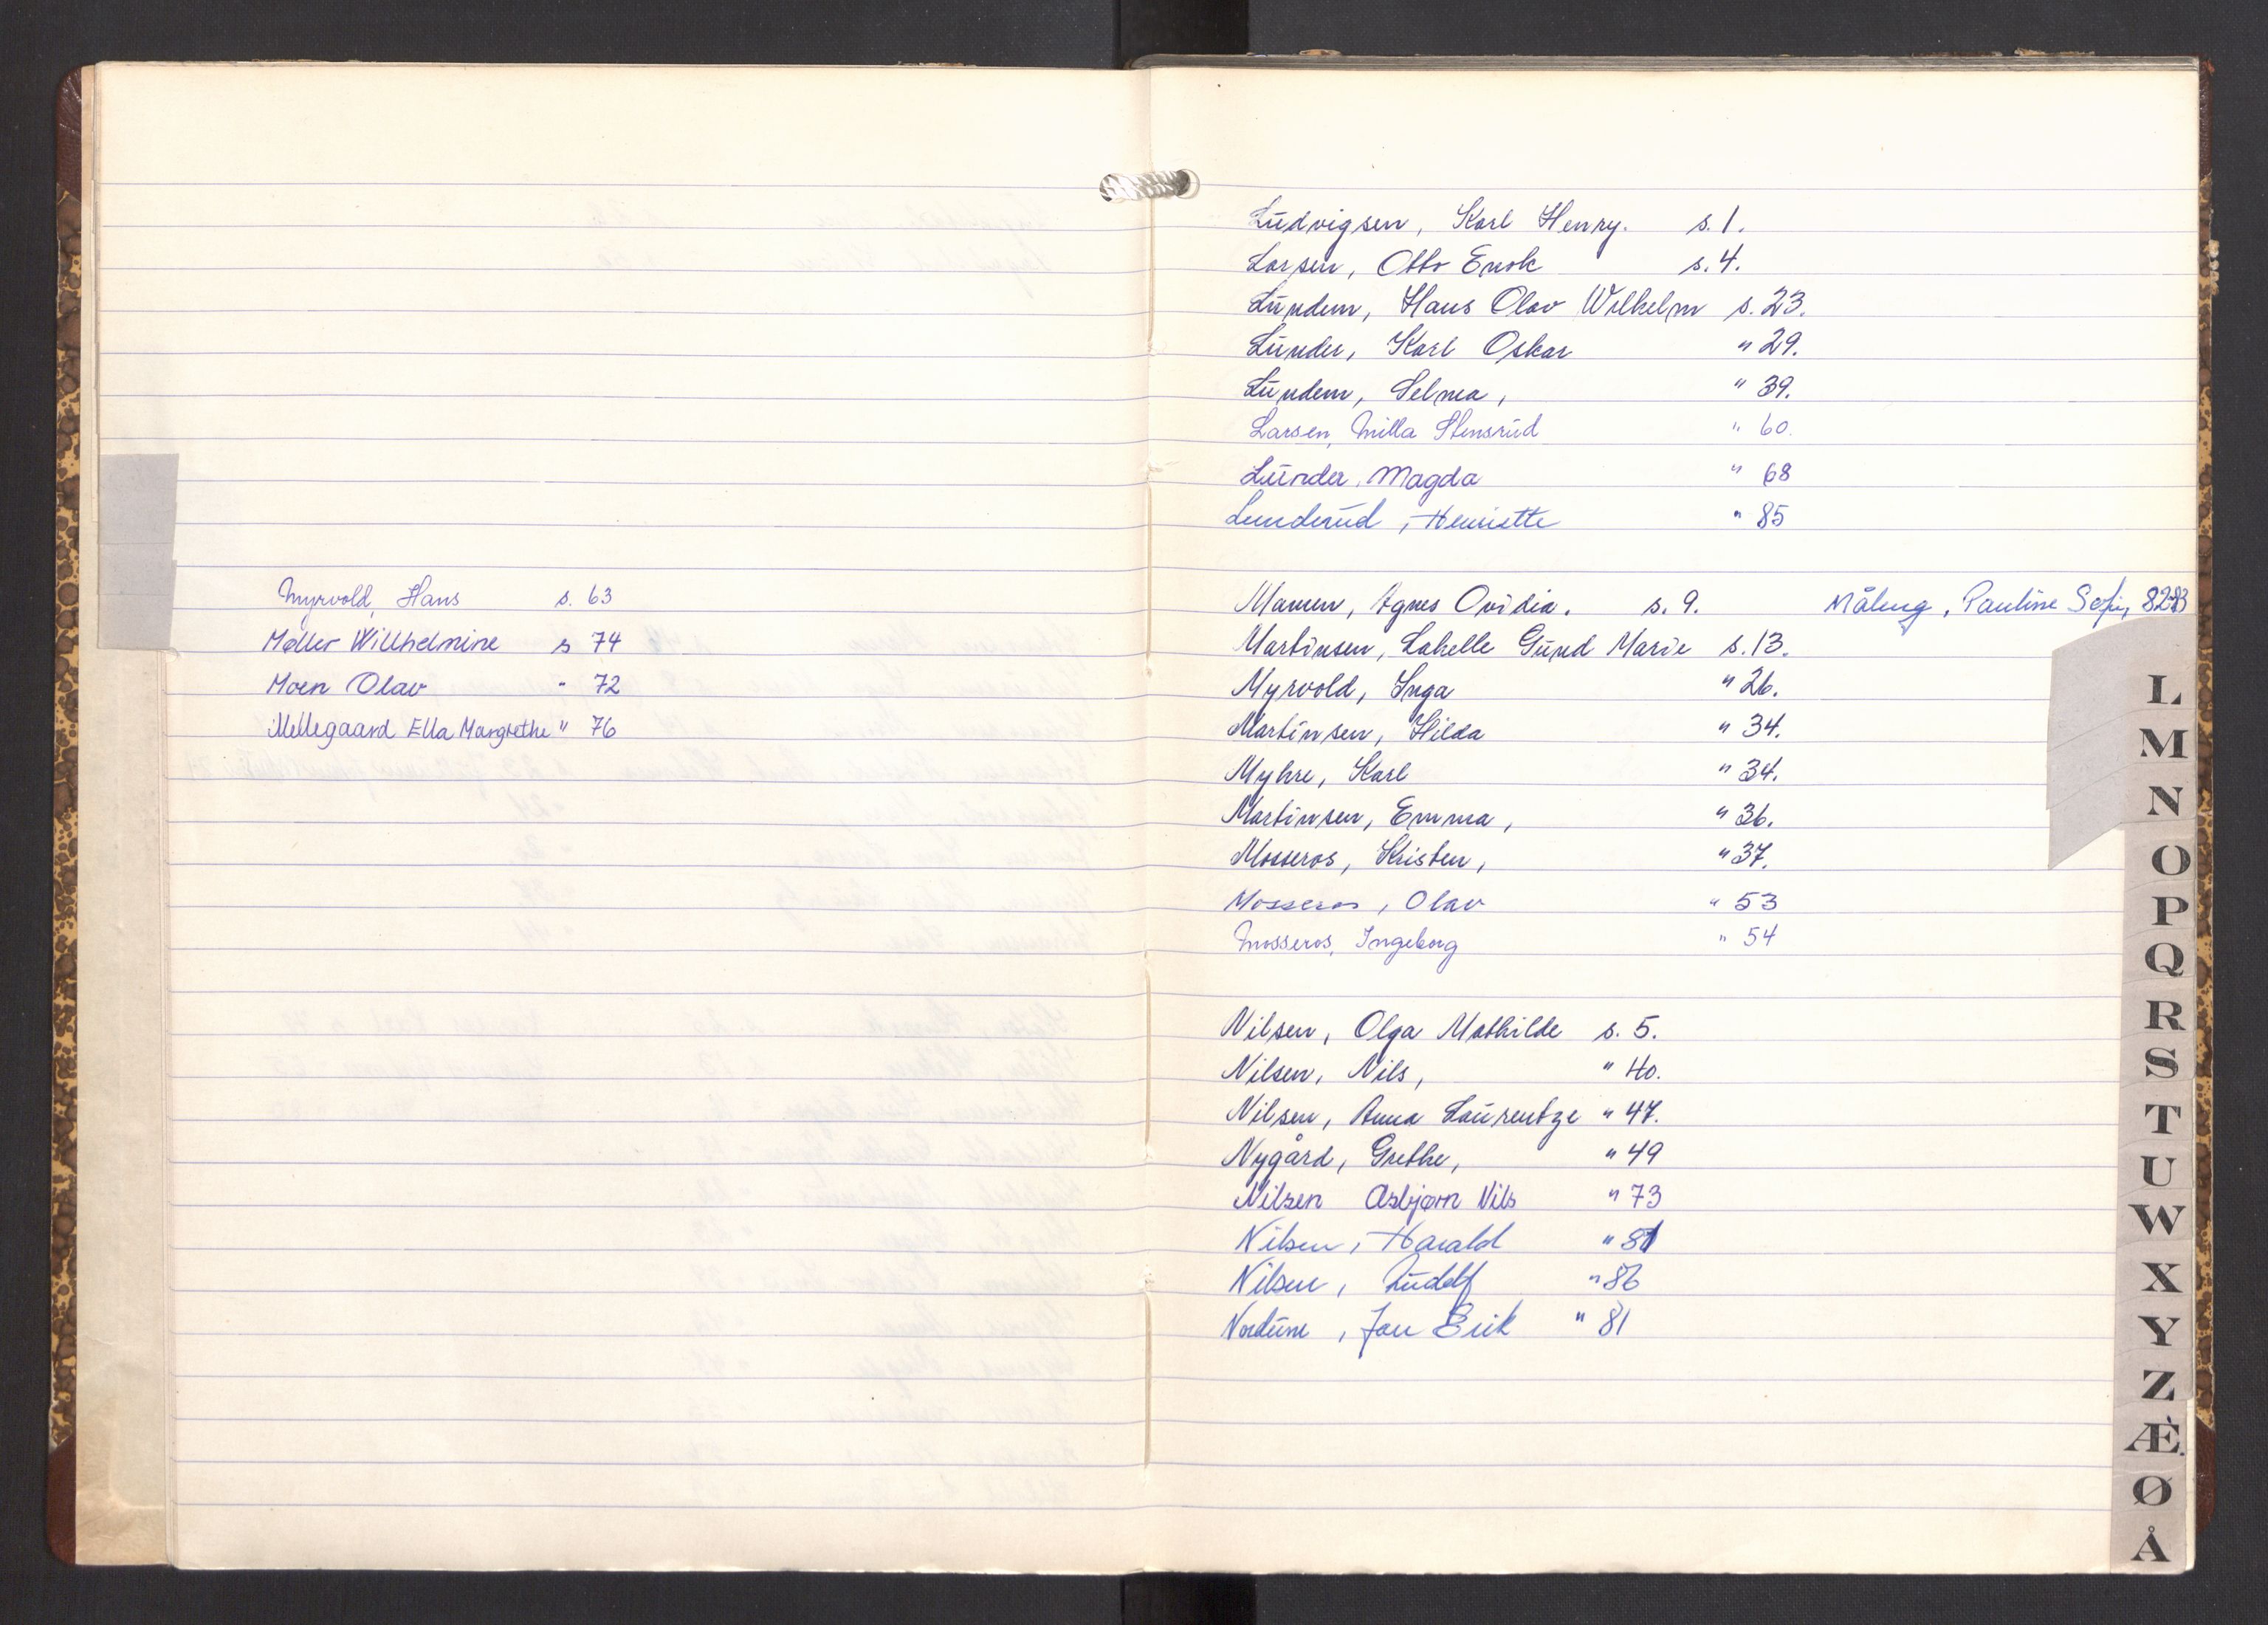 Myrvold, Hans s. 63
Møller Willhelmine s 74
Moen Olav " 72
Mellegaard Ella Margrethe " 76
Ludvigsen, Karl Henry. s. 1.
Larsen, Otto Enok s. 4.
Lundem, Hans Olav Wilhelm s. 23.
Lunder, Karl Oskar " 29.
Lundem, Selma, " 39.
Larsen, Milla Stensrud " 60.
Lunder, Magda " 68
Lunderud, Henriette " 85
Mamen, Agnes Ovidia. s. 9. Måleng, Pauline Sofie,
Martinsen, Gund Marie s. 13.
Myrvold, Inga " 26.
Martinsen, Hilda " 34.
Myhre, Karl " 34.
Martinsen, Emma, " 36.
Mosseros, Kristen, " 37.
Mosseros, Olav " 53
Mosseros, Ingeborg " 54
Nilsen, Olga Mathilde s. 5.
Nilsen, Nils, " 40.
Nilsen, Anna Laurentze " 47.
Nygård, Grethe, " 49
Nilsen Asbjørn Nils " 73
Nilsen, Harald " 81
Nilsen, " 86
Jan Erik " 81
L
M
N
O
P
Q
R
S
T
U
W
X
Y
Z
Æ
Ø
Å